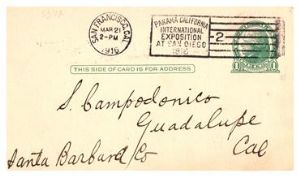 SAN FRANCISCO, CAL.
MAR 21
2-PM
1916
PANAMA CALIFORNIA
INTERNATIONAL
EXPOSITION
AT SAN DIEGO
1916
2
THIS SIDE OF CARD IS FOR ADDRESS
S. Campodonico
Guadalupe
Santa Barbara Co
Cal